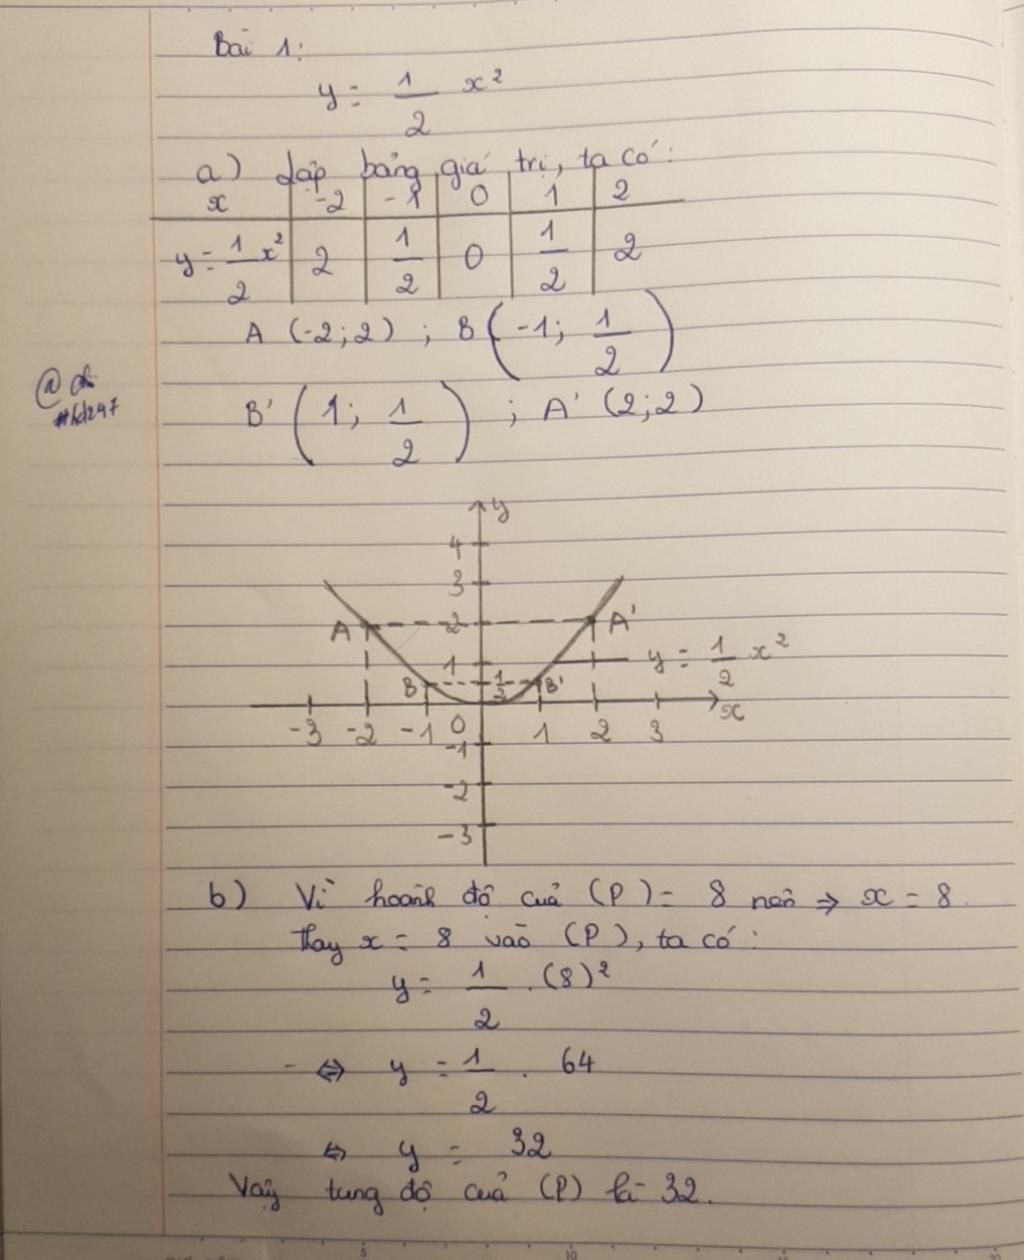 Bài 1:
y = 1/2 x²
a) Lập bảng giá trị, ta có:
x | -2 | -1 | 0 | 1 | 2
y = 1/2 x² | 2 | 1/2 | 0 | 1/2 | 2
A (-2;2) ; B (-1; 1/2)
#hd247
B' (1; 1/2) ; A' (2;2)
y
4
3
A 2 A'
1 y = 1/2 x²
B 1/2 B'
x
-3 -2 -1 0 1 2 3
-1
-2
-3
b) Vì hoành độ của (P) = 8 nên ⇒ x = 8.
Thay x = 8 vào (P), ta có:
y = 1/2 . (8)²
- ⇔ y = 1/2 . 64
⇔ y = 32
Vậy tung độ của (P) là 32.